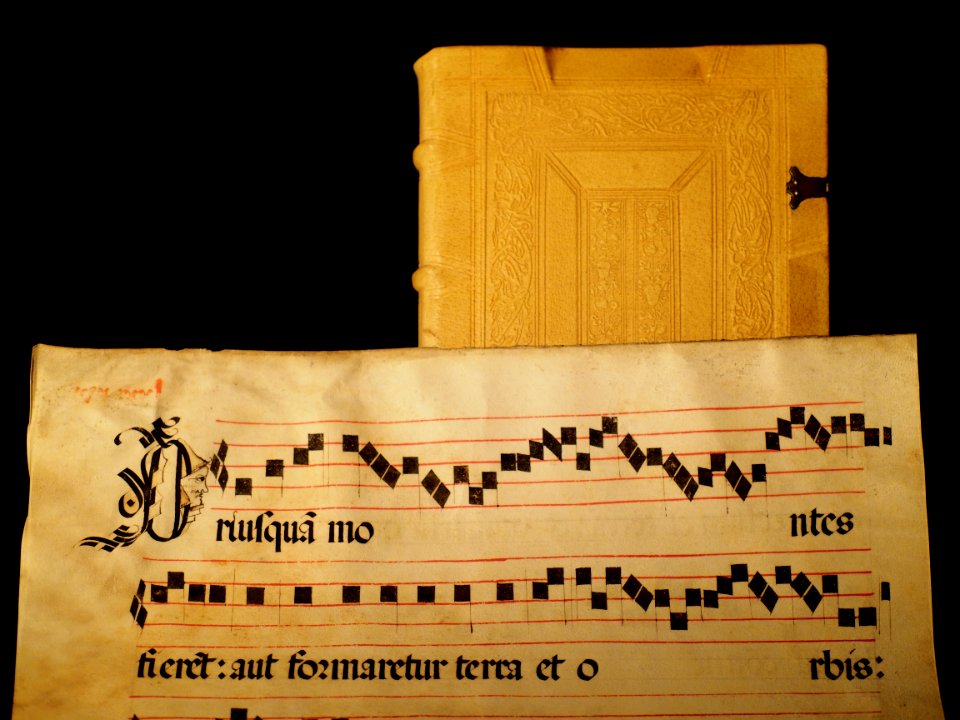 Priusquã mo ntes
fierẽt: aut formaretur terra et o rbis: